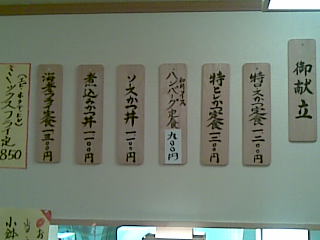 御献立
特ロースかつ定食 一二〇〇円
特ヒレかつ定食 一三〇〇円
和風ソース
ハンバーグ定食 九〇〇円
ソースかつ丼 一一〇〇円
煮込みかつ丼 一一〇〇円
海老フライ定食
ミックスフライ定
850
小鉢